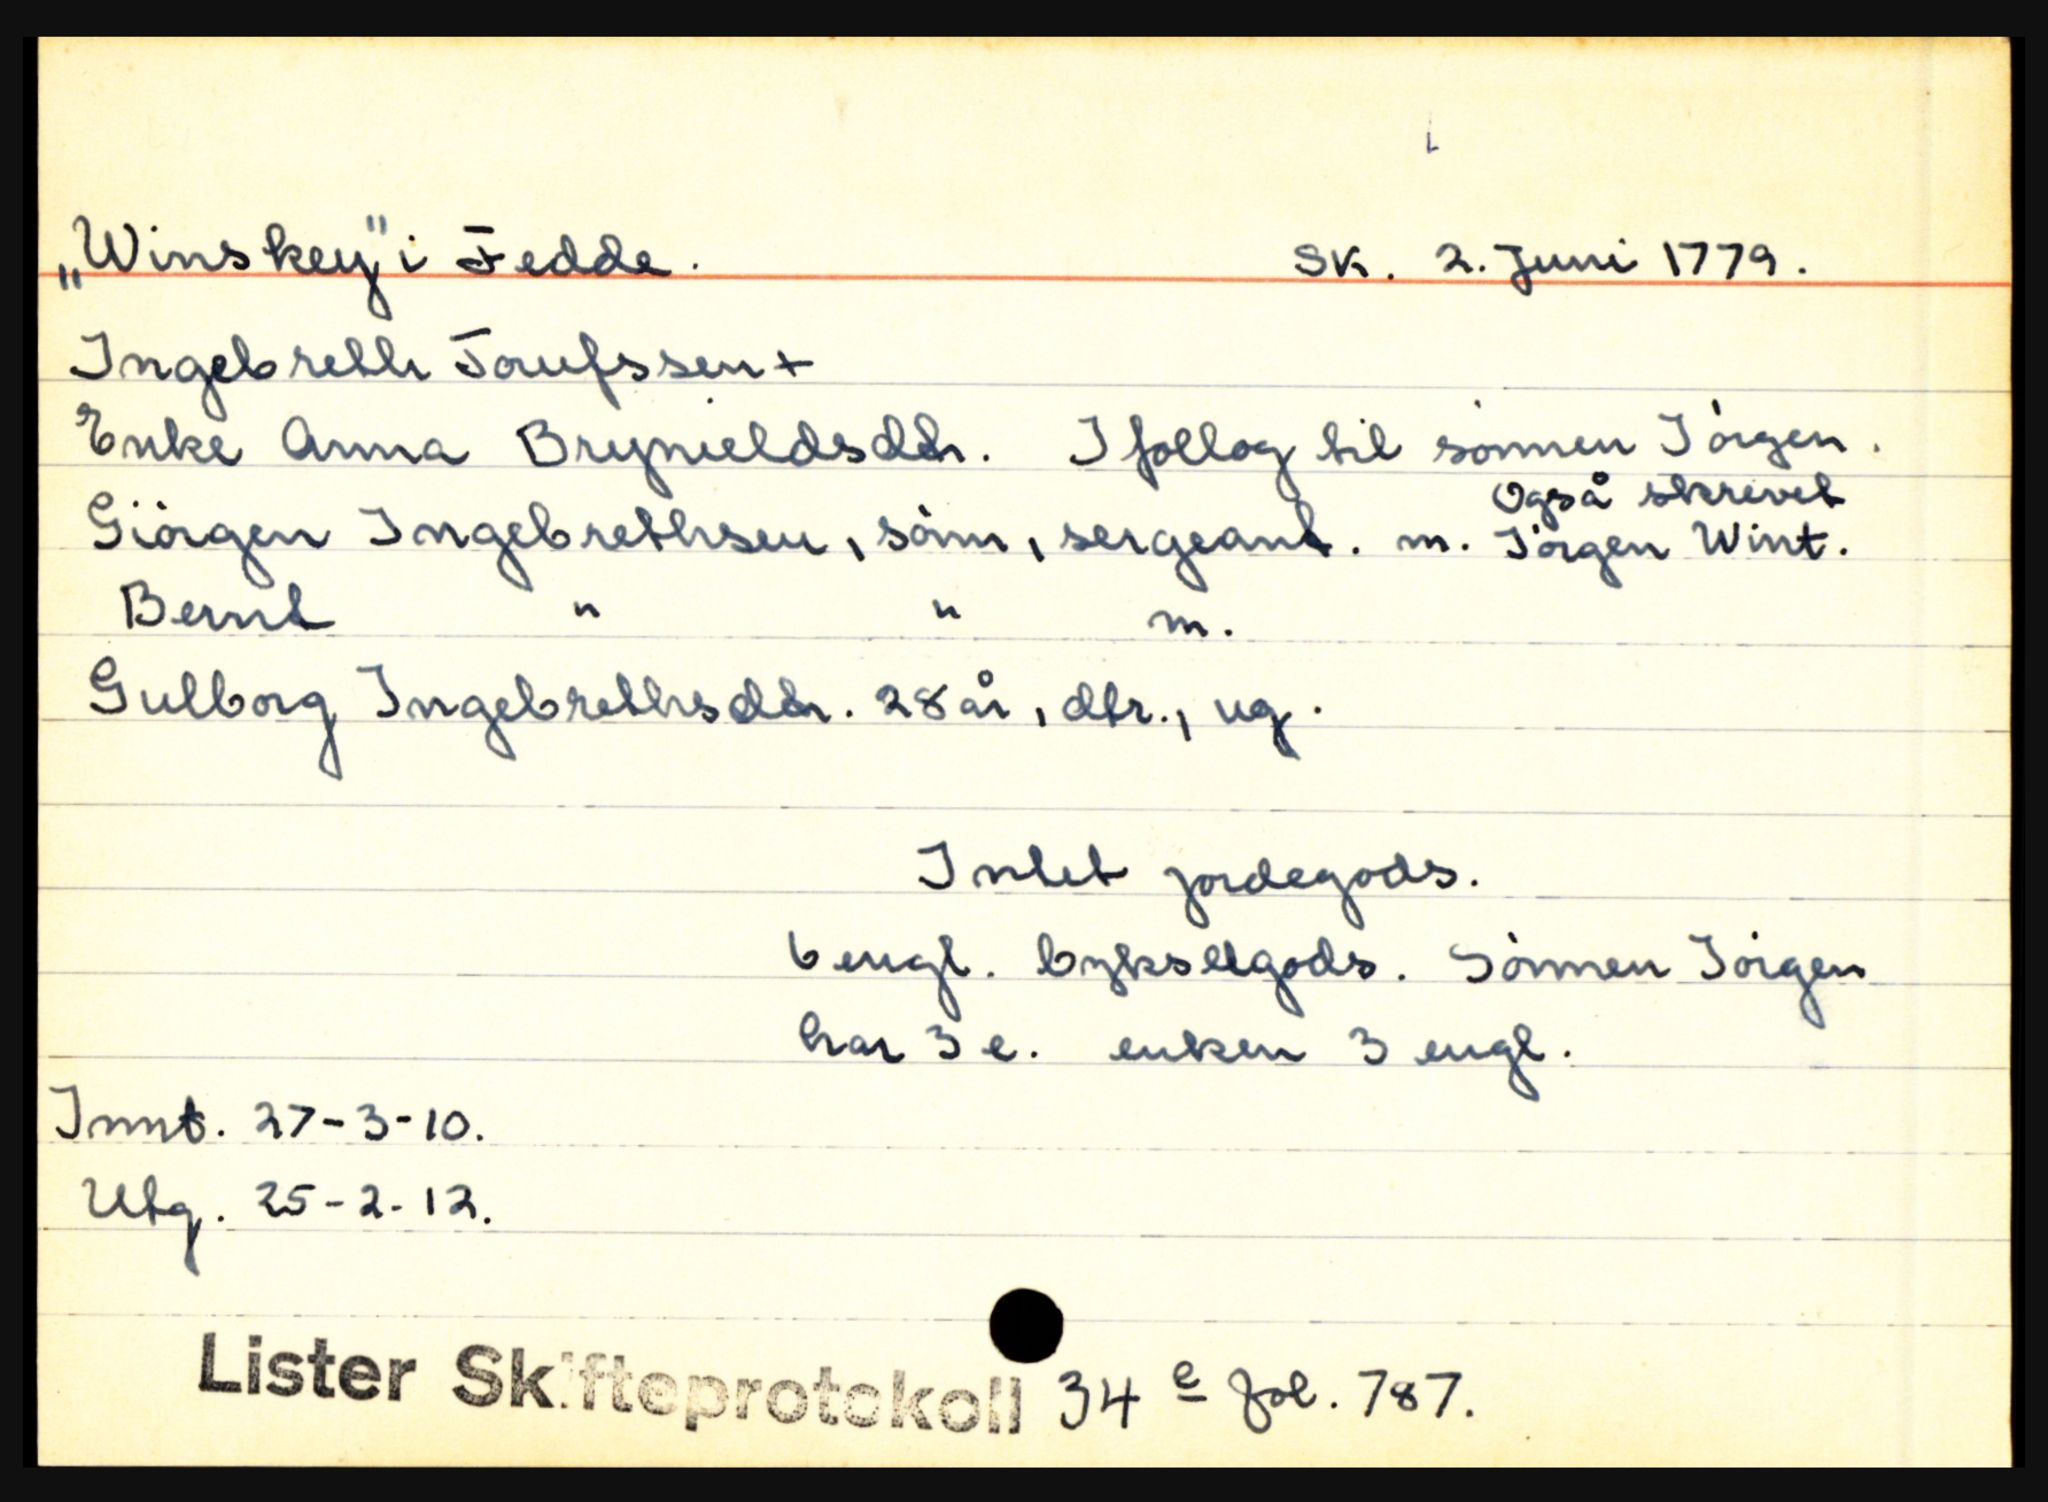 „Winskey" i Fedde. Sk. 2. Juni 1779.
Ingebreth Torufssen +
Enke Anna Brynieldsdtr. I follog til sönnen Jörgen.
Også skrevet
Giörgen Ingebrethsen, sönn, sergeant. m. Jörgen Wint.
Bernt " " m.
Gulborg Ingebrethsdtr. 28 år, dtr., ug.
Intet jordegods.
6 engl. bykselgods. Sönnen Jörgen
har 3 e. enken 3 engl.
Innt. 27-3-10.
Utg. 25-2-12.
Lister Skifteprotokoll 34 e fol. 787.